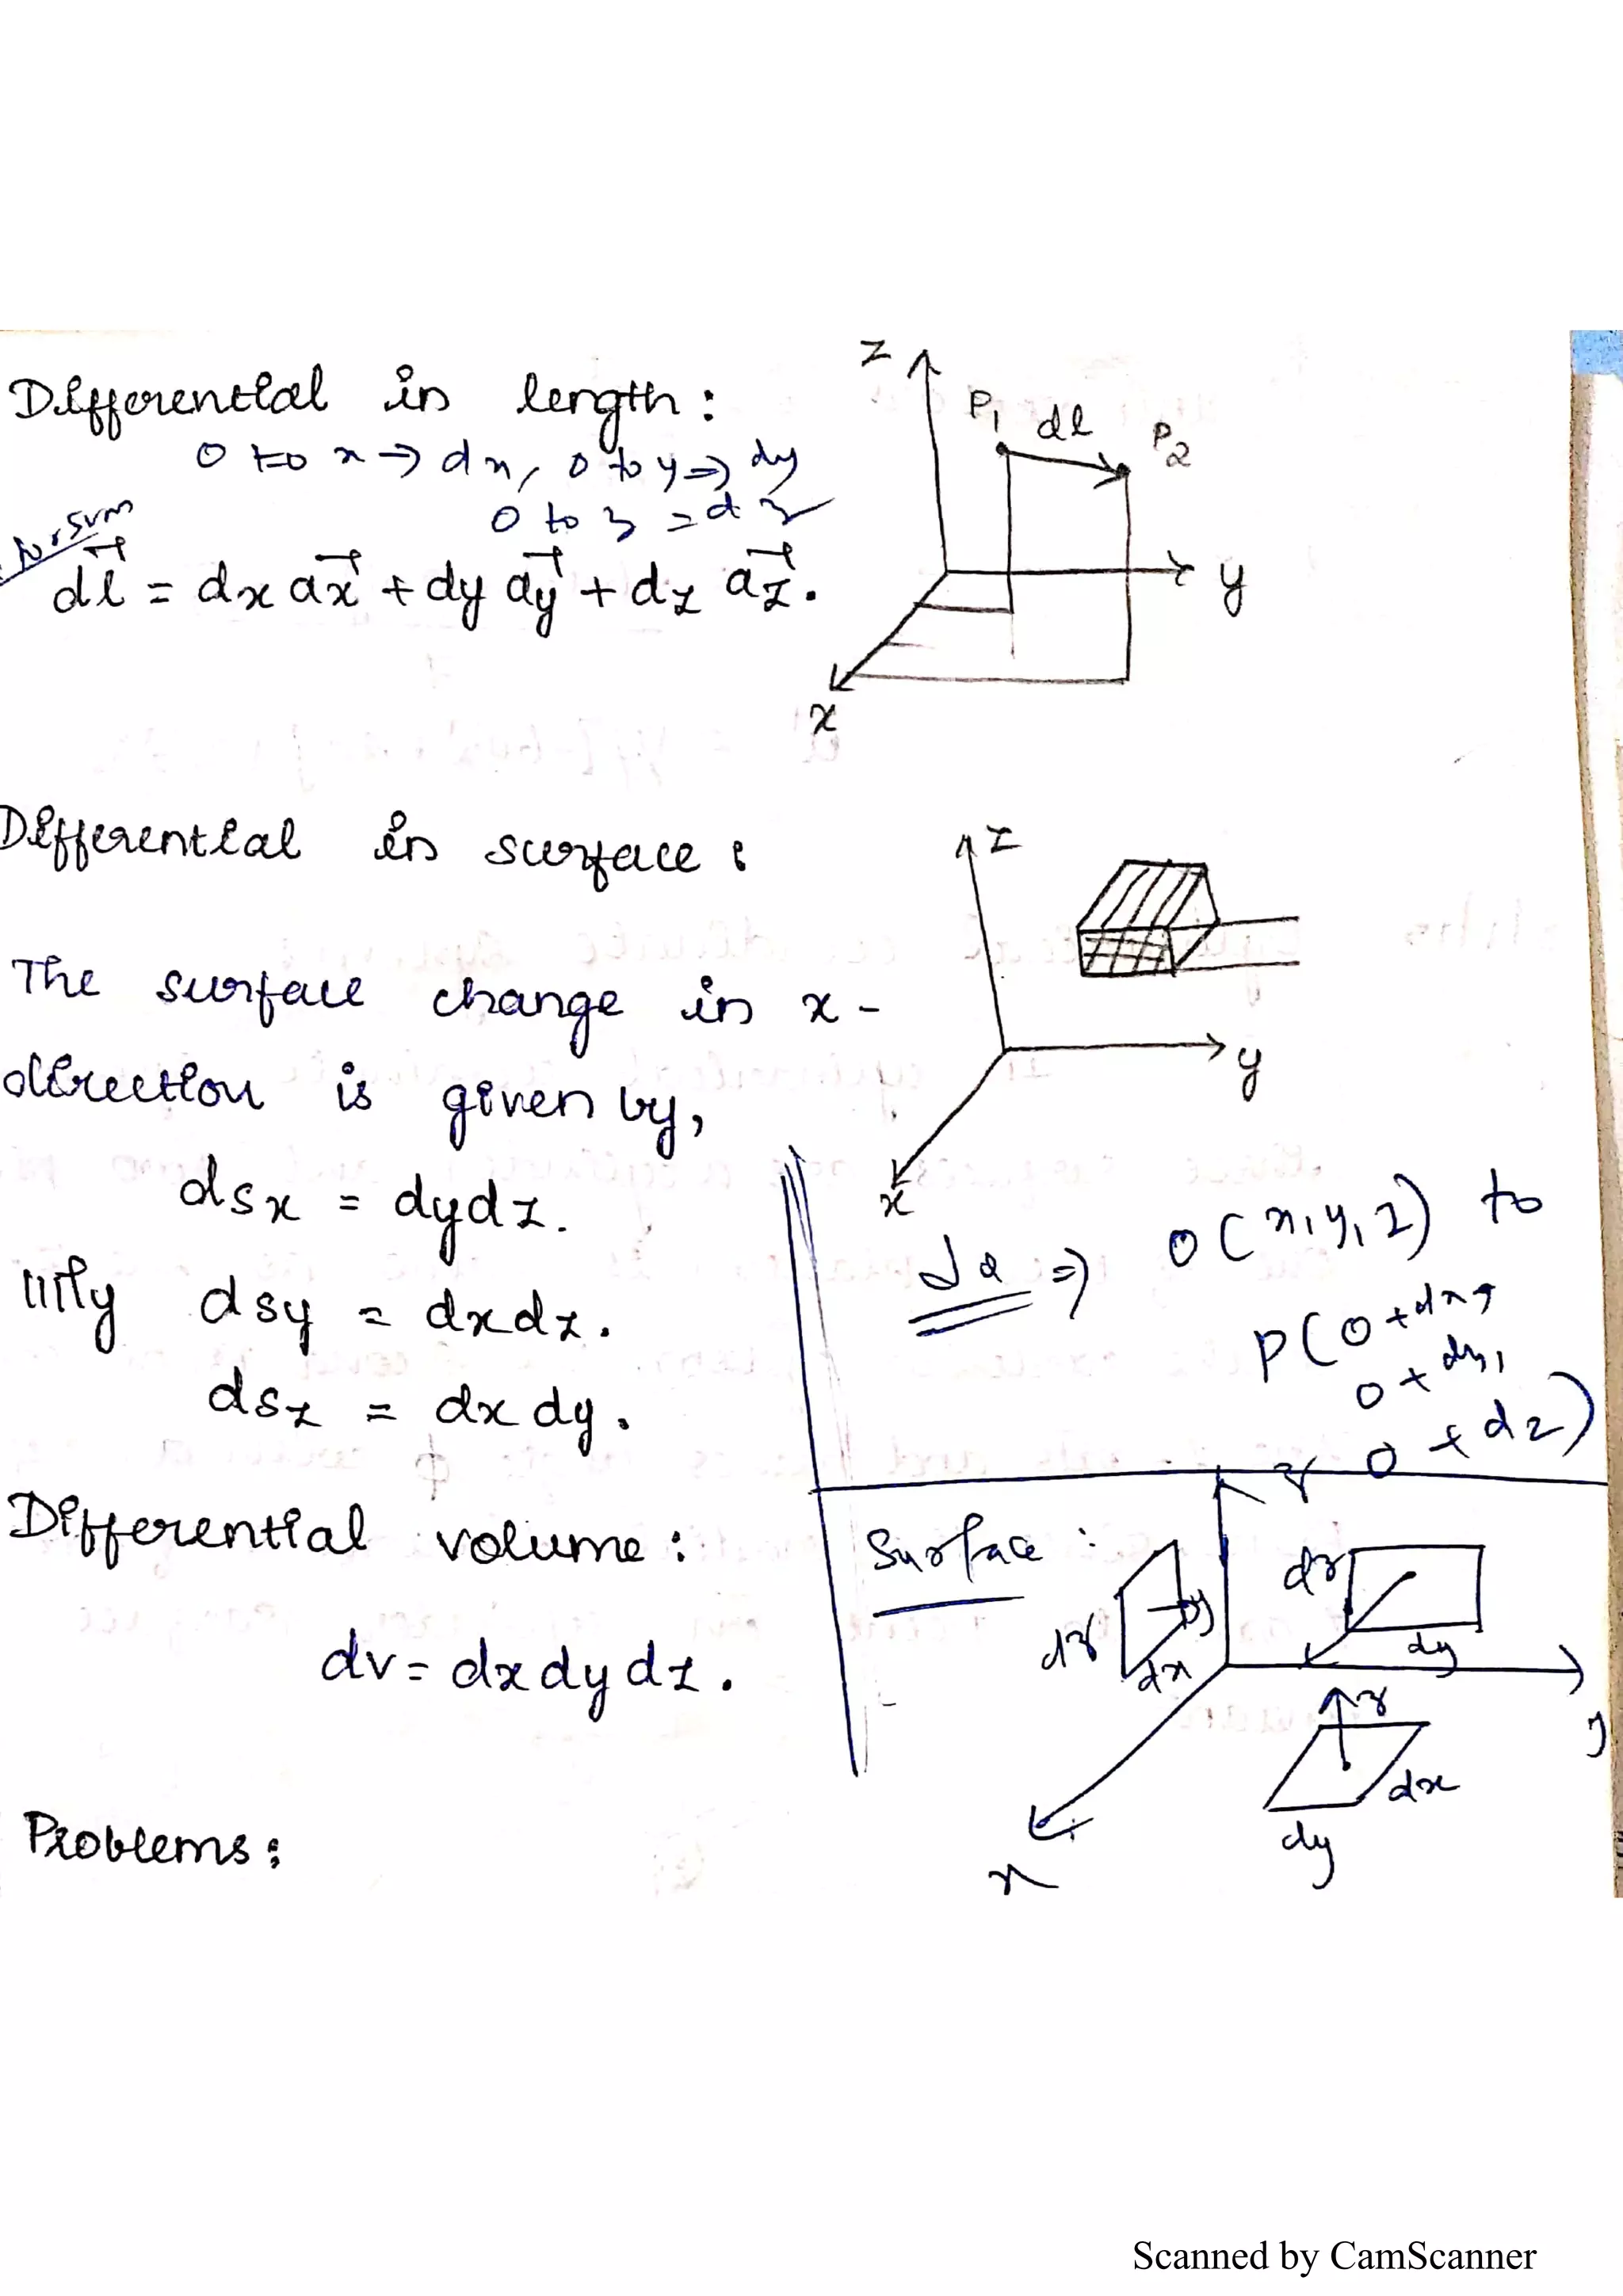 Differential in length :
0 to x → dx, 0 to y ⇒ dy
0 to z = dz
dl = dx ax + dy ay + dz az.
z
P1
dl
P2
y
x
Differential in surface :
The surface change in x-
direction is given by,
dsx = dydz.
lllly dsy = dxdz.
dsz = dx dy.
z
y
x
dl ⇒ 0(x,y,z) to
P(0+dx,
0+dy,
0+dz)
Differential volume :
dv = dx dy dz.
Surface :
z
dz
dx
y
dz
dy
z
dx
dy
y
x
Problems :
Scanned by CamScanner